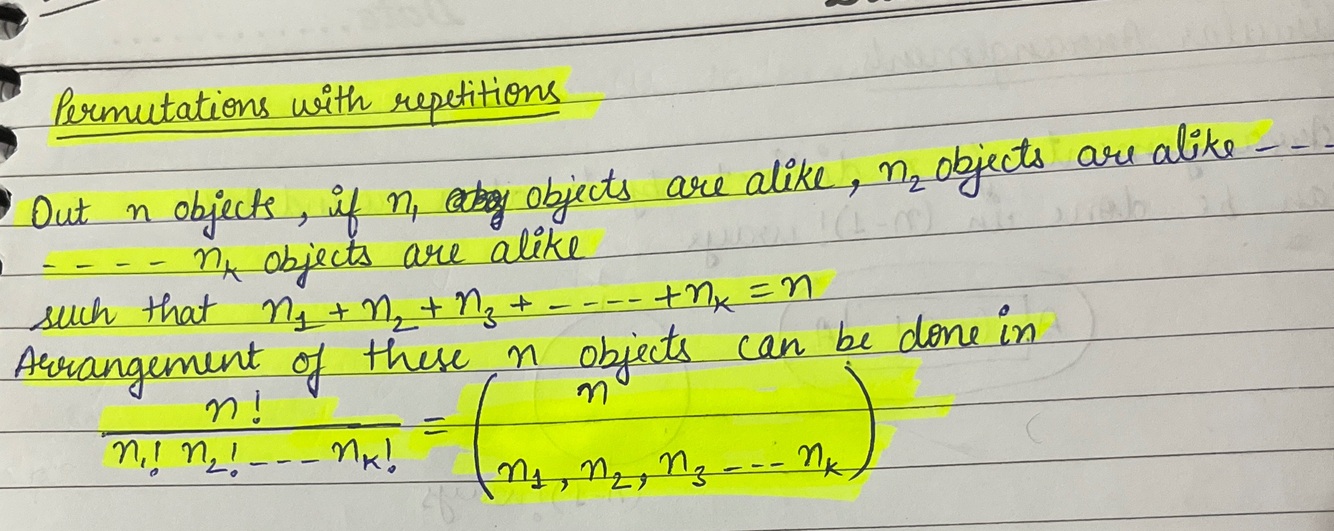 Permutations with repetitions
Out n objects, if n₁ objects are alike, n₂ objects are alike - - -
- - - - nₖ objects are alike
such that n₁ + n₂ + n₃ + - - - - + nₖ = n
Arrangement of these n objects can be done in
n! / (n₁! n₂! - - - nₖ!) = (n
n₁, n₂, n₃ - - - nₖ)